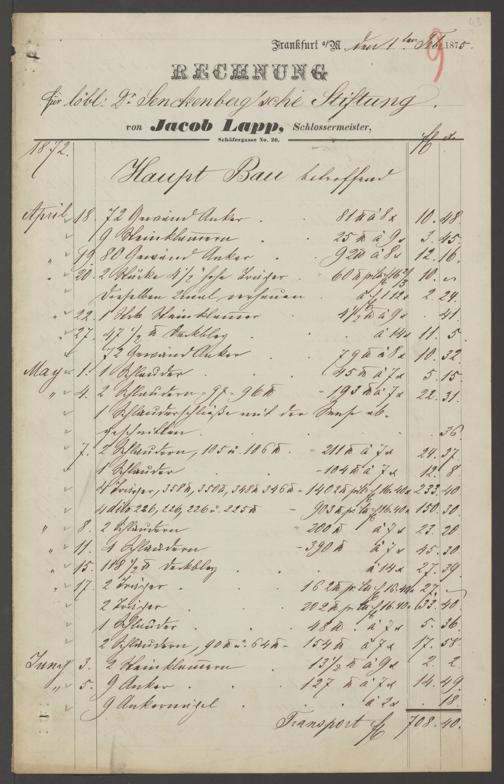 Frankfurt a/M den 1ten Febr. 1875.
9
RECHNUNG
für löbl: Dr. Senckenberg'sche Stiftung.
von Jacob Lapp, Schlossermeister,
Schäfergasse No. 20,
1872.
Haupt Bau betreffend
April 18. 72 Gewänd Anker . . 81 ℔ à 8x 10. 48
19 Steinklammern 25 ℔ à 9x 3. 45
19. 80 Gewänd Anker . 92 ℔ à 8x 12. 16
20. 2 Stücke 4½" hohe Träger 60 ℔ 10. "
Dieselben 2. 24.
22. 1 Steinklammer 4½ ℔ à 9x . 41
27. 47½ ℔ à 14x 11. 5
72 Gewänd Anker 79 ℔ à 8x 10. 32
May 1. 1 Schlauder 45 ℔ à 7x 5. 15
" 4. 2 Schlaudern 97. 96 ℔ - 193 ℔ à 7x 22. 31.
1 mit der ab-
geschnitten . . 36
7. 2 Schlaudern, 105 u. 106 ℔ - 211 ℔ à 7x 24. 37
1 Schlauder - 104 ℔ à 7x 12. 8
4 Träger, 358 ℔, 350 ℔, 348 ℔ 346 ℔ - 1402 ℔ 233. 40
4 dito 226, 226, 226 u. 225 ℔ - 903 ℔ 150. 30
" 8. 2 Schlaudern - 200 ℔ à 7x 23. 20
" 11. 4 Schlaudern - 390 ℔ à 7x 45. 30
" 15. 118½ ℔ à 14x 27. 39
" 17. 2 Träger 162 ℔ 27. "
2 Träger 202 ℔ 33. 40
1 Schlauder 48 ℔ à 7x 5. 36
2 Schlaudern, 90 ℔ u. 64 ℔ - 154 ℔ à 7x 17. 58
Juny 3. 2 Steinklammern 13½ ℔ à 9x 2. 2
" 5. 9 Anker 127 ℔ à 7x 14. 49
9 Ankernägel à 2x . 18
Transport fl 708. 40.